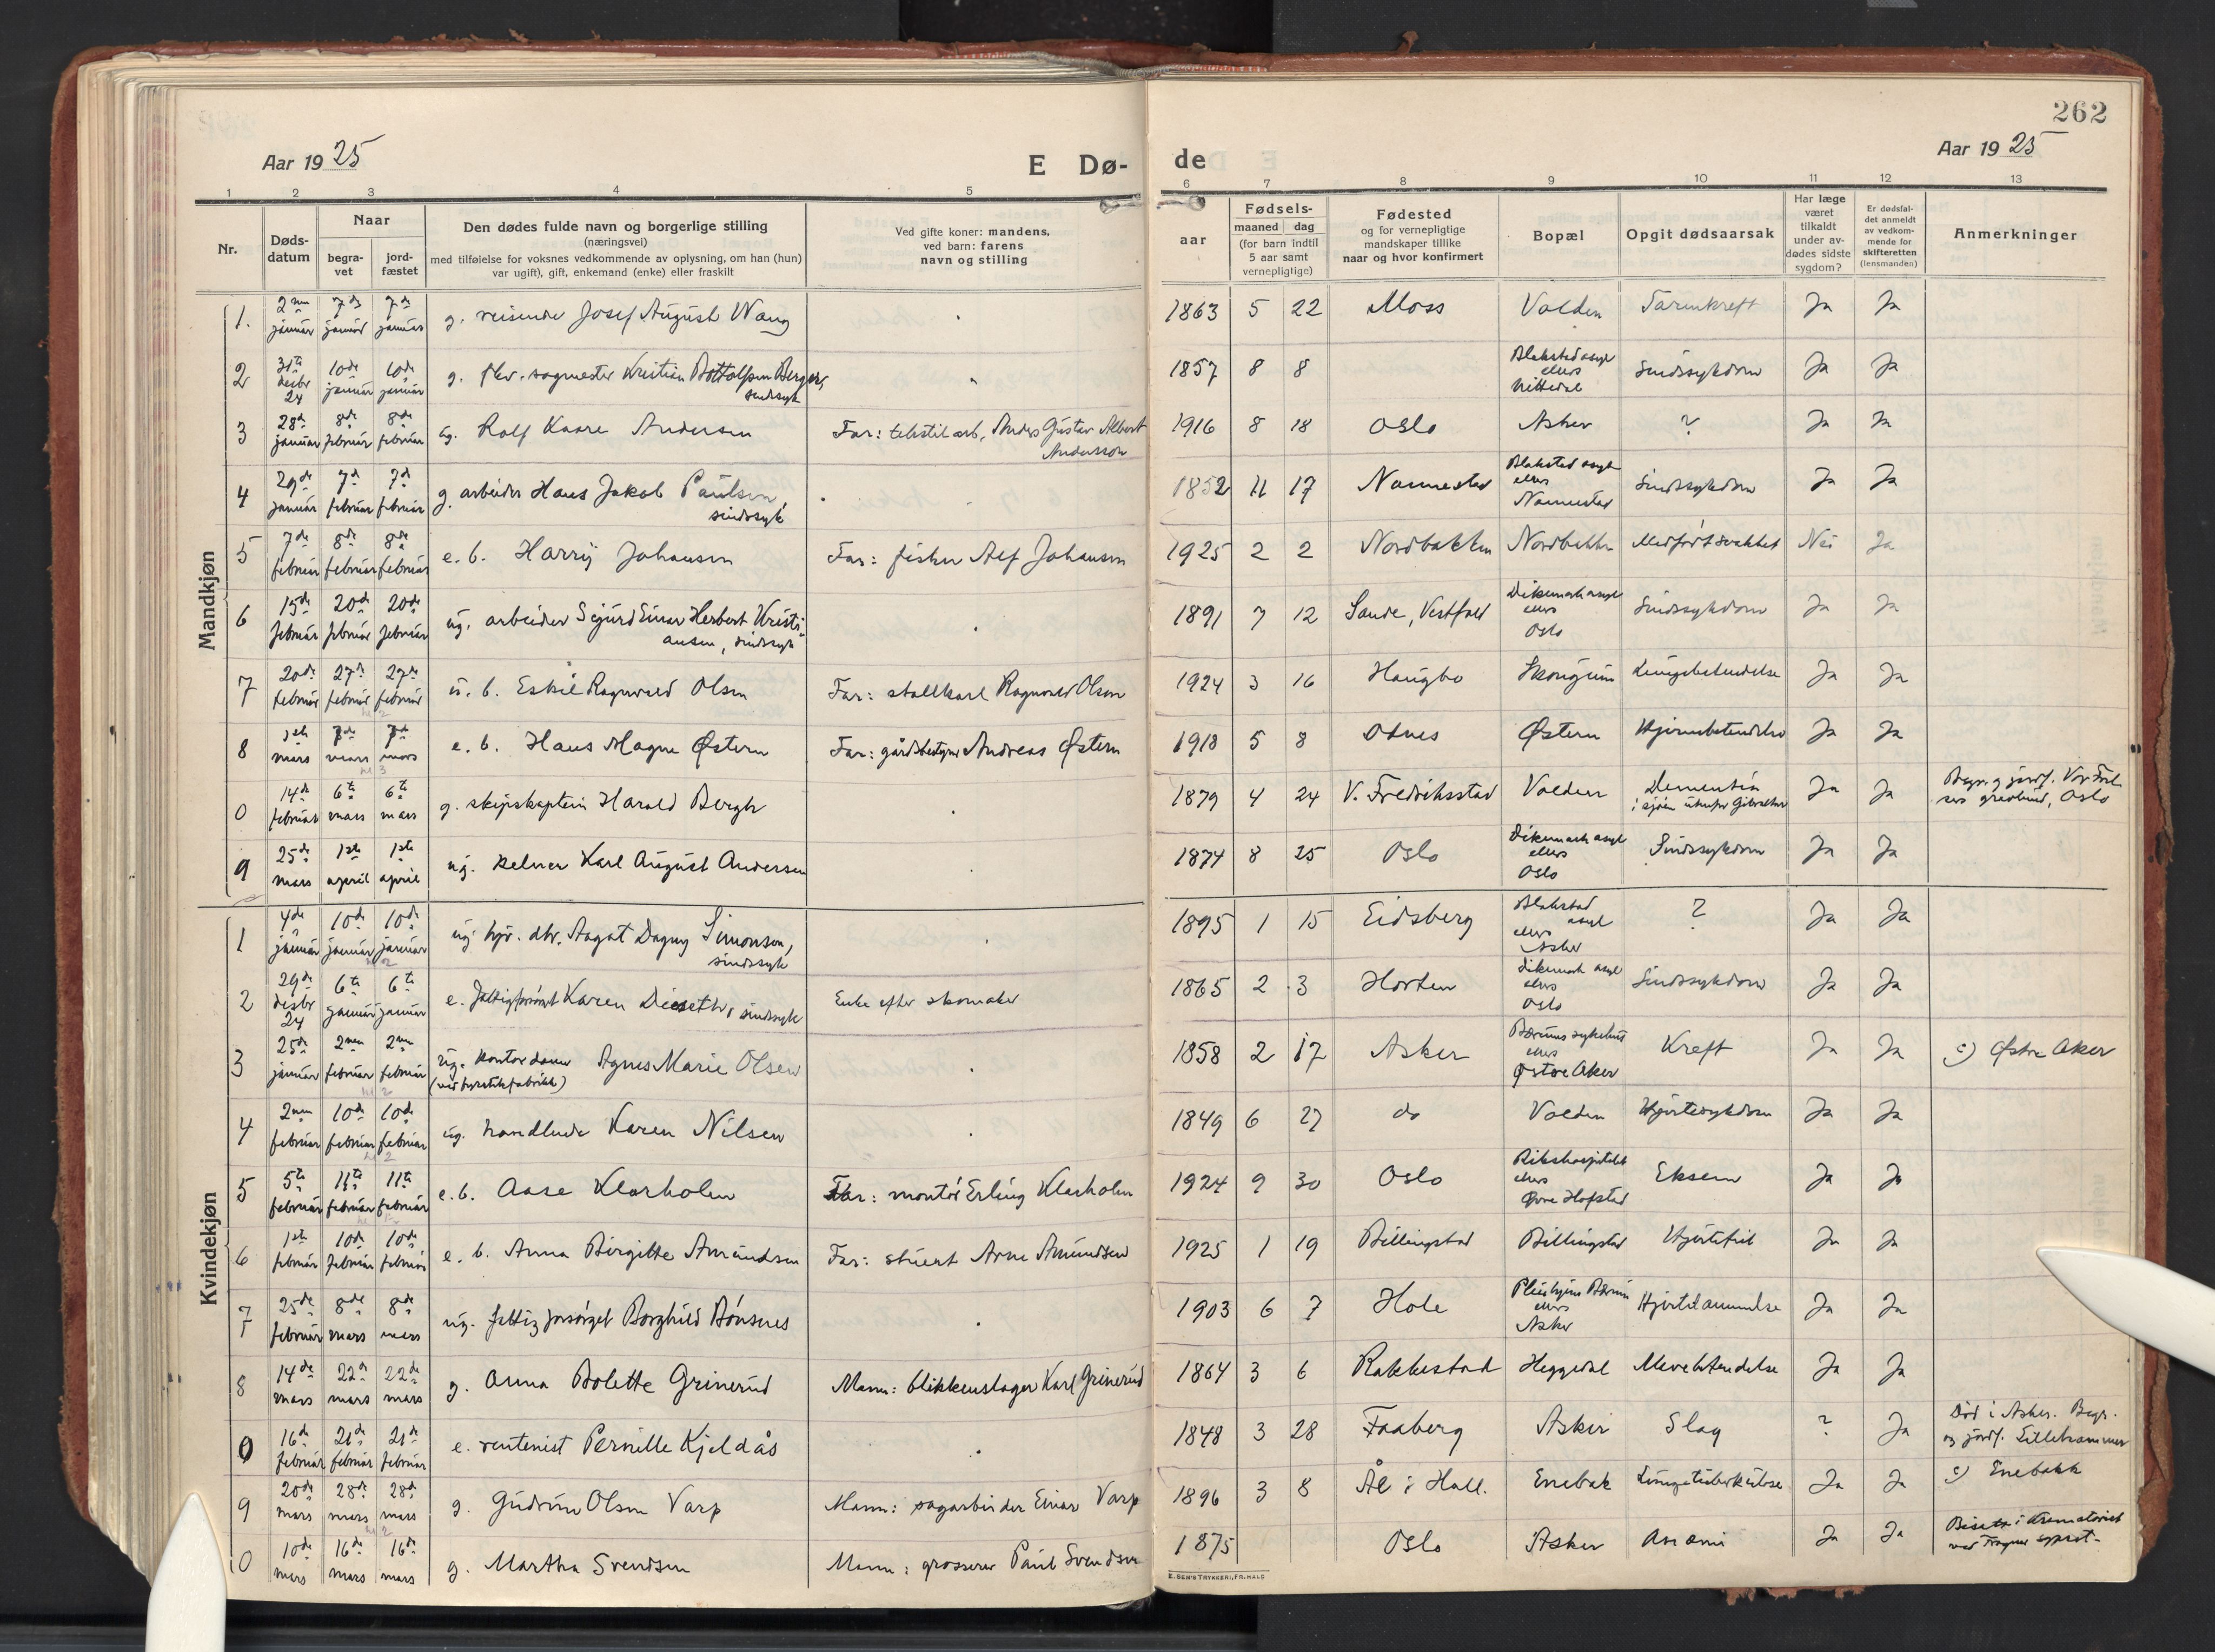 262
Aar 1925
E Dø-
de
Aar 1925
1 2 3 4 5
6 7 8 9 10 11 12 13
Nr.
Døds-
datum
Naar
begra-
vet
jord-
fæstet
Den dødes fulde navn og borgerlige stilling
(næringsvei)
med tilføielse for voksnes vedkommende av oplysning, om han (hun)
var ugift), gift, enkemand (enke) eller fraskilt
Ved gifte koner: mandens,
ved barn: farens
navn og stilling
aar
Fødsels-
maaned dag
(for barn indtil
5 aar samt
vernepligtige)
Fødested
og for vernepligtige
mandskaper tillike
naar og hvor konfirmert
Bopæl
Opgit dødsaarsak
Har læge
været
tilkaldt
under av-
dødes sidste
sygdom?
Er dødsfal-
det anmeldt
av vedkom-
mende for
skifteretten
(lensmanden)
Anmerkninger
Mandkjøn
1. 2nen januar 7de januar 7de januar g. reisende Josef August Wang 1863 5 22 Moss Valden Tarmkreft Ja Ja
2 31te desbr 24 10de januar 10de januar g. fhv. sagmester Kristian Bottolfsen Berger, sindssyk 1857 8 8 Blakstad asyl ellers Nittedal Sindssykdom Ja Ja
3 28de januar 8de februar 8de februar ug. Rolf Kaare Andersen Far: tekstilarb. Anders Gustav Albert Andersson 1916 8 18 Oslo Asker ? Ja Ja
4 29de januar 7de februar 7de februar g. arbeider Hans Jakob Paulsen, sindssyk 1852 11 17 Nannestad Blakstad asyl ellers Nannestad Sindssykdom Ja Ja
5 7de februar 8de februar 8de februar e. b. Harry Johansen Far: fisker Alf Johansen 1925 2 2 Nordbakken Nordbakken Medfødt svakhet Nei Ja
6 15de februar 20de februar 20de februar ug. arbeider Sigurd Einar Herbert Kristiansen, sindssyk 1891 7 12 Sande, Vestfold Dikemark asyl ellers Oslo Sindssykdom Ja Ja
7 20de februar 27de februar 27de februar u. b. Eskil Ragnvald Olsen Far: stallkarl Ragnvald Olsen 1924 3 16 Haugbo Skaugum Lungebetendelse Ja Ja
8 1ste mars 7de mars 7de mars e. b. Hans Magne Østern Far: gårdbestyrer Andreas Østern 1918 5 8 Østern Hjernebetendelse Ja Ja
0 14de februar 6te mars 6te mars g. skipskaptein Harald Bergh 1879 4 24 V. Fredriksstad Valden Dementia i sjøen utenfor Gibraltar Ja Ja Begr. og jordf. Vor Frelsers gravlund, Oslo
9 25de mars 1ste april 1ste april ug. kelner Karl August Andersen 1874 8 25 Oslo Dikemark asyl ellers Oslo Sindssykdom Ja Ja
Kvindekjøn
1 4de januar 10de januar 10de januar ug. hjv. dtr. Aagot Dagny Simonsen, sindssyk 1895 1 15 Eidsberg Blakstad asyl ellers Asker ? Ja Ja
2 29de desbr 24 6te januar 6te januar e. fattigforsørget Karen Dieseth, sindssyk Enke efter skomaker 1865 2 3 Horten Dikemark asyl ellers Oslo Sindssykdom Ja Ja
3 25de januar 2nen februar 2nen februar ug. kontordame Agnes Marie Olsen 1858 2 17 Asker Bærums sykehus ellers Østre Aker Kreft Ja Ja Østre Aker
4 2nen februar 10de februar 10de februar ug. handlende Karen Nilsen 1849 6 27 do Valden Hjertesykdom Ja Ja
5 5te februar 11te februar 11te februar e. b. Aase Klarholm Far: montør Erling Klarholm 1924 9 30 Oslo Rikshospitalet ellers Øvre Hofstad Eksem Ja Ja
6 1ste februar 10de februar 10de februar e. b. Anna Birgitte Amundsen Far: stuert Arne Amundsen 1925 1 19 Billingstad Billingstad Hjertefeil Ja Ja
7 25de februar 8de mars 8de mars ug. fattigforsørget Borghild Bønsnes 1903 6 7 Hole Pleiehjem Bærum ellers Asker Hjertelammelse Ja Ja
8 14de mars 22de mars 22de mars g. Anna Bolette Grinerud Mann: blikkenslager Karl Grinerud 1864 3 6 Rakkestad Heggedal Ja Ja
0 16de februar 21de februar 21de februar e. rentenist Pernille Kjeldås 1848 3 28 Faaberg Asker Slag ? Ja Død i Asker. Begr. og jordf. Lillehammer
9 20de mars 28de mars 28de mars g. Gudrun Olsen Varp Mann: sagarbeider Einar Varp 1896 3 8 Ål i Hall. Enebak Lungetuberkulose Ja Ja Enebakk
10 10de mars 16de mars 16de mars g. Martha Svendsen Mann: grosserer Paul Svendsen 1875 Oslo Asker Anæmi Ja Ja Bisett i Krematoriet
E. SEM'S TRYKKERI, FR.HALD